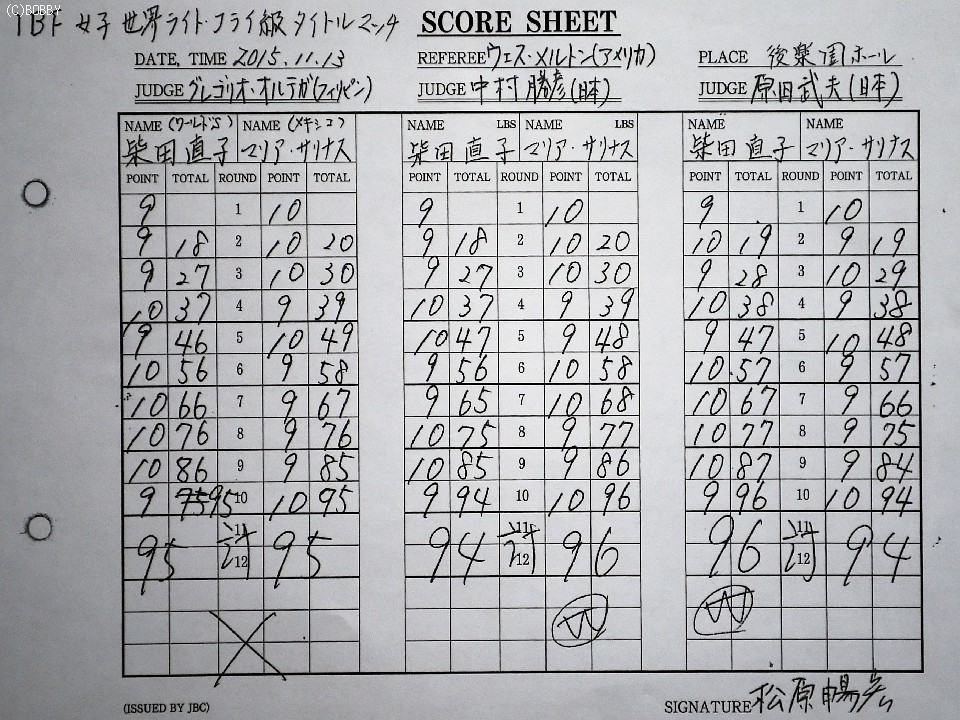 (C)BOBBY
IBF 女子 世界ライト・フライ級 タイトルマッチ SCORE SHEET
DATE, TIME 2015.11.13 REFEREE ウェス・メルトン(アメリカ) PLACE 後楽園ホール
JUDGE グレゴリオ・オルテガ(フィリピン) JUDGE 中村勝彦(日本) JUDGE 原田武夫(日本)
NAME (ワールドS) NAME (メキシコ) NAME LBS NAME LBS NAME NAME
柴田直子 マリア・サリナス 柴田直子 マリア・サリナス 柴田直子 マリア・サリナス
POINT TOTAL ROUND POINT TOTAL POINT TOTAL ROUND POINT TOTAL POINT TOTAL ROUND POINT TOTAL
9 1 10 9 1 10 9 1 10
9 18 2 10 20 9 18 2 10 20 10 19 2 9 19
9 27 3 10 30 9 27 3 10 30 9 28 3 10 29
10 37 4 9 39 10 37 4 9 39 10 38 4 9 38
9 46 5 10 49 10 47 5 9 48 9 47 5 10 48
10 56 6 9 58 9 56 6 10 58 10 57 6 9 57
10 66 7 9 67 9 65 7 10 68 10 67 7 9 66
10 76 8 9 76 10 75 8 9 77 10 77 8 9 75
10 86 9 9 85 10 85 9 9 86 10 87 9 9 84
9 75 95 10 10 95 9 94 10 10 96 9 96 10 10 94
11 11 11
95 12 95 94 12 96 96 12 94
W W
(ISSUED BY JBC) SIGNATURE 松原暢彦